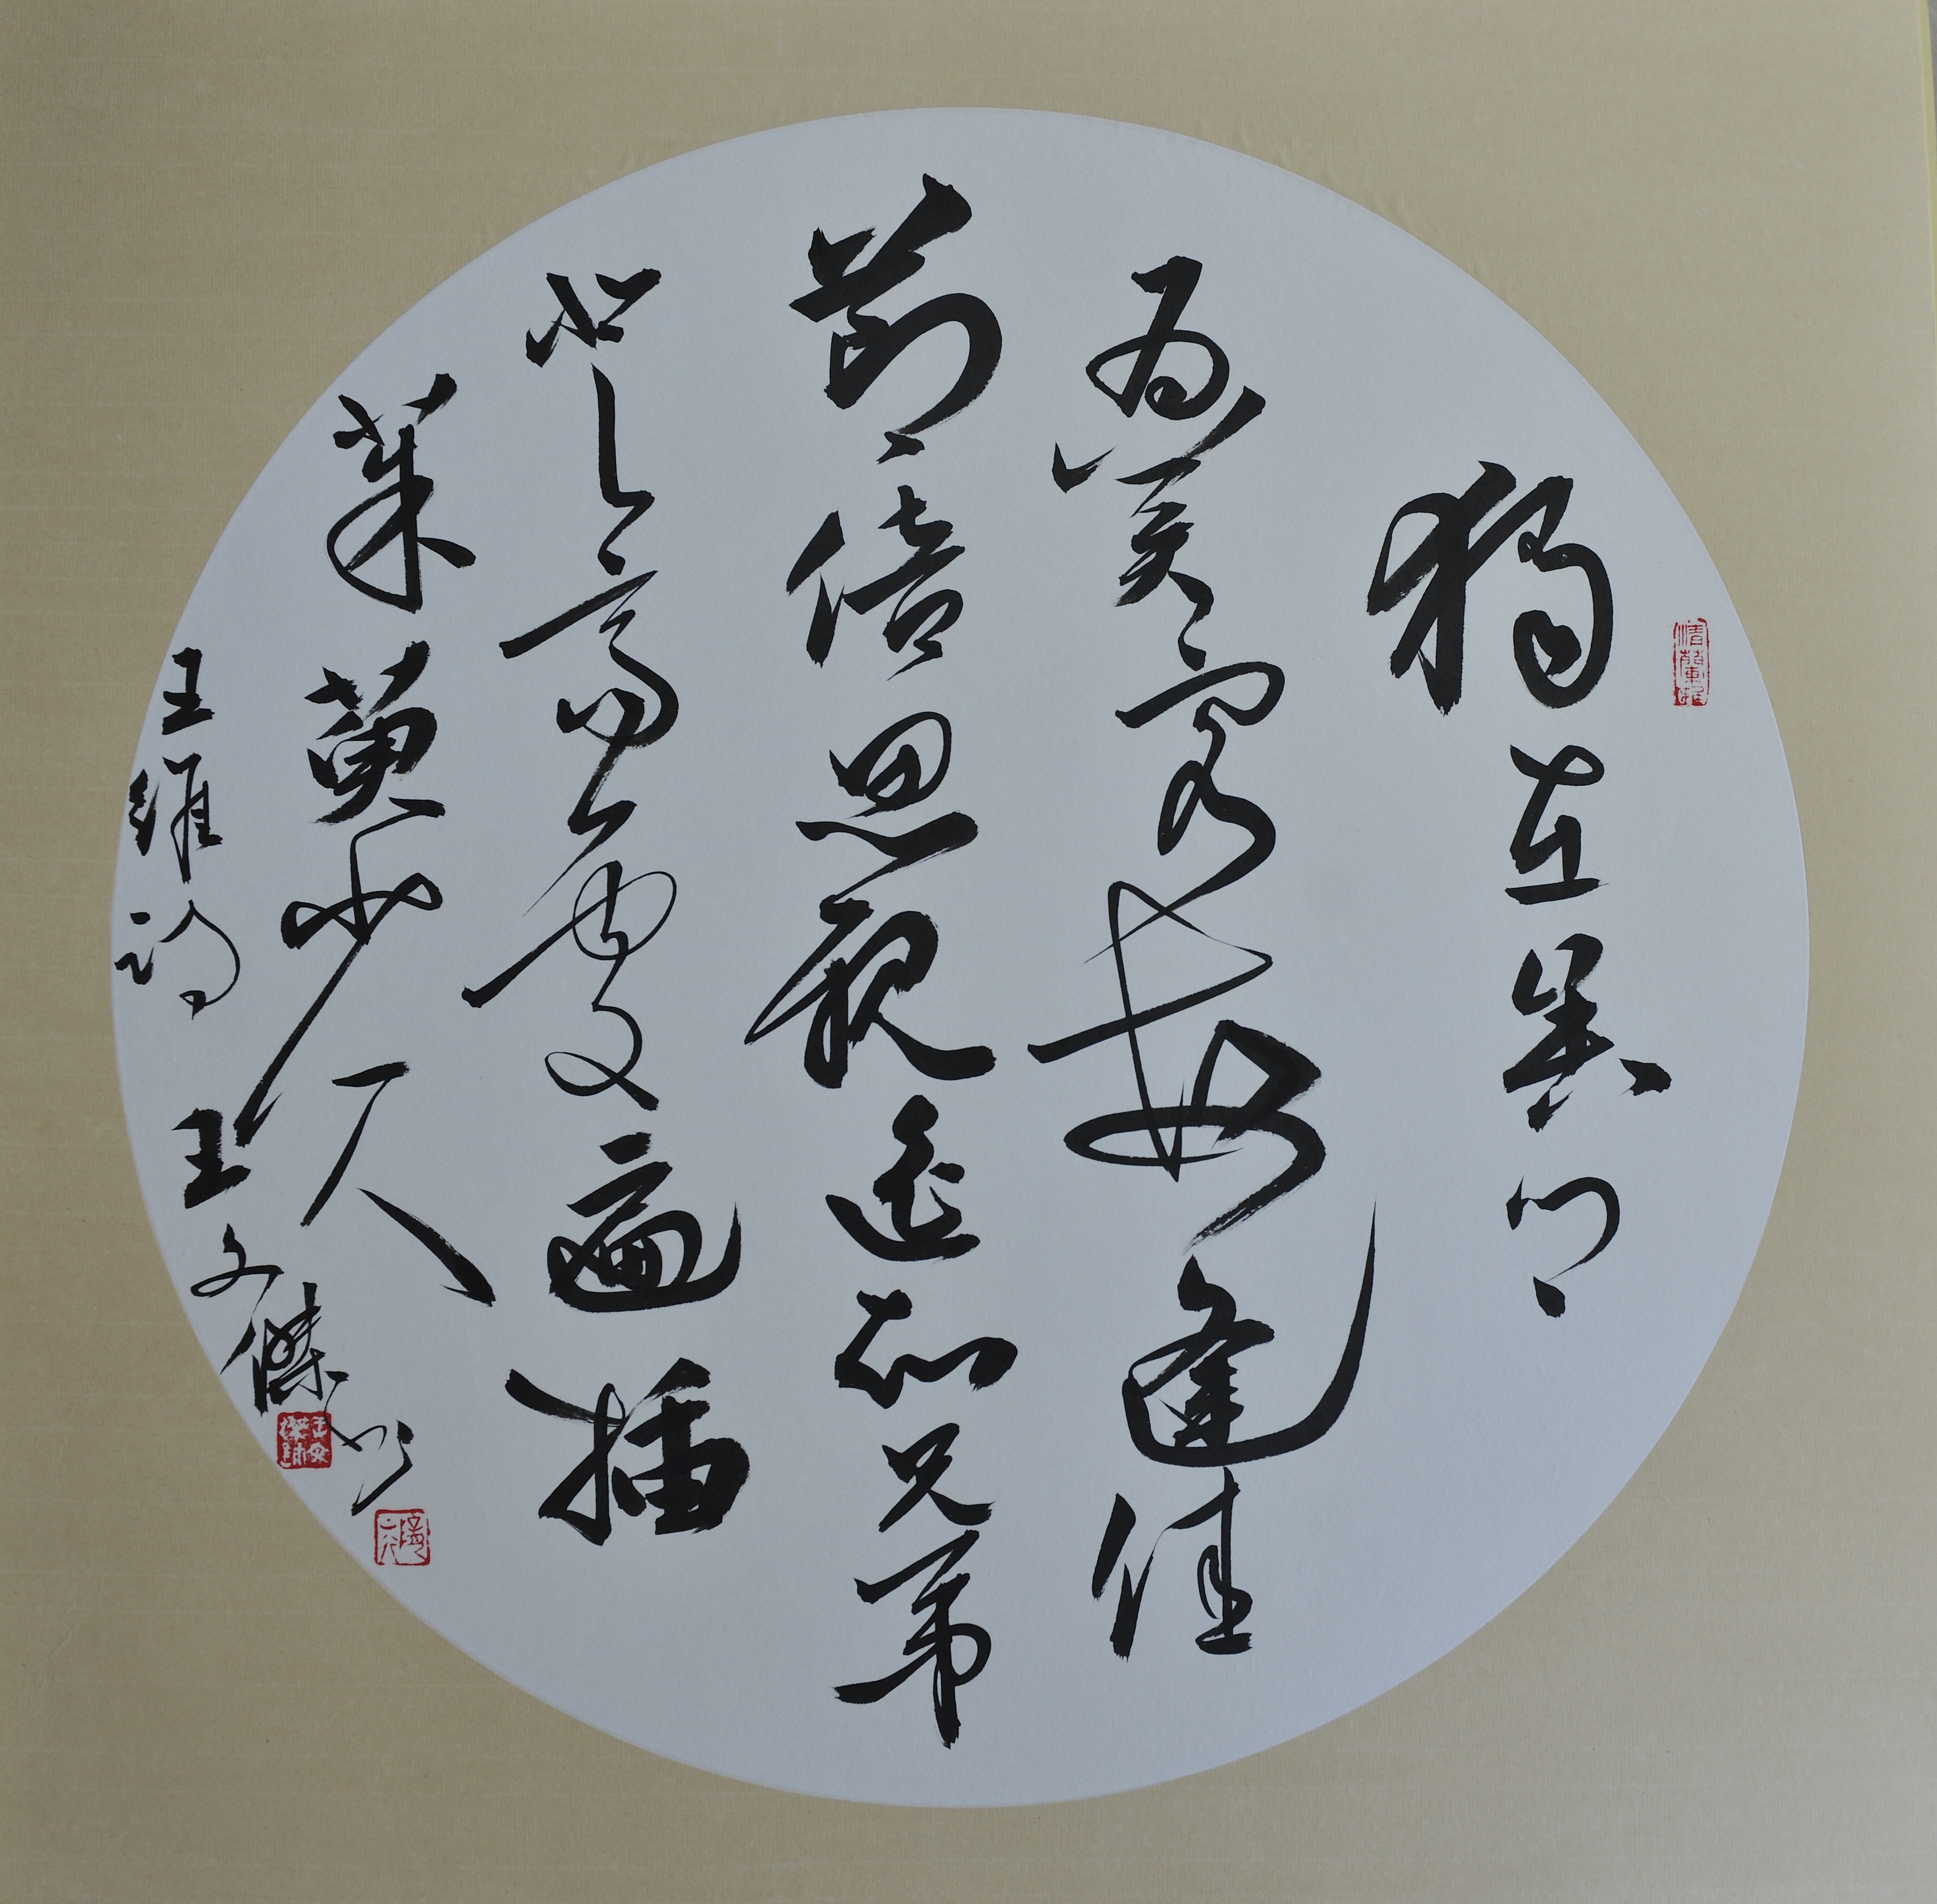 獨在異鄉
為異客每逢佳
節倍思親遙知兄弟
登高處遍插
茱萸少一人
王維詩 王文傑